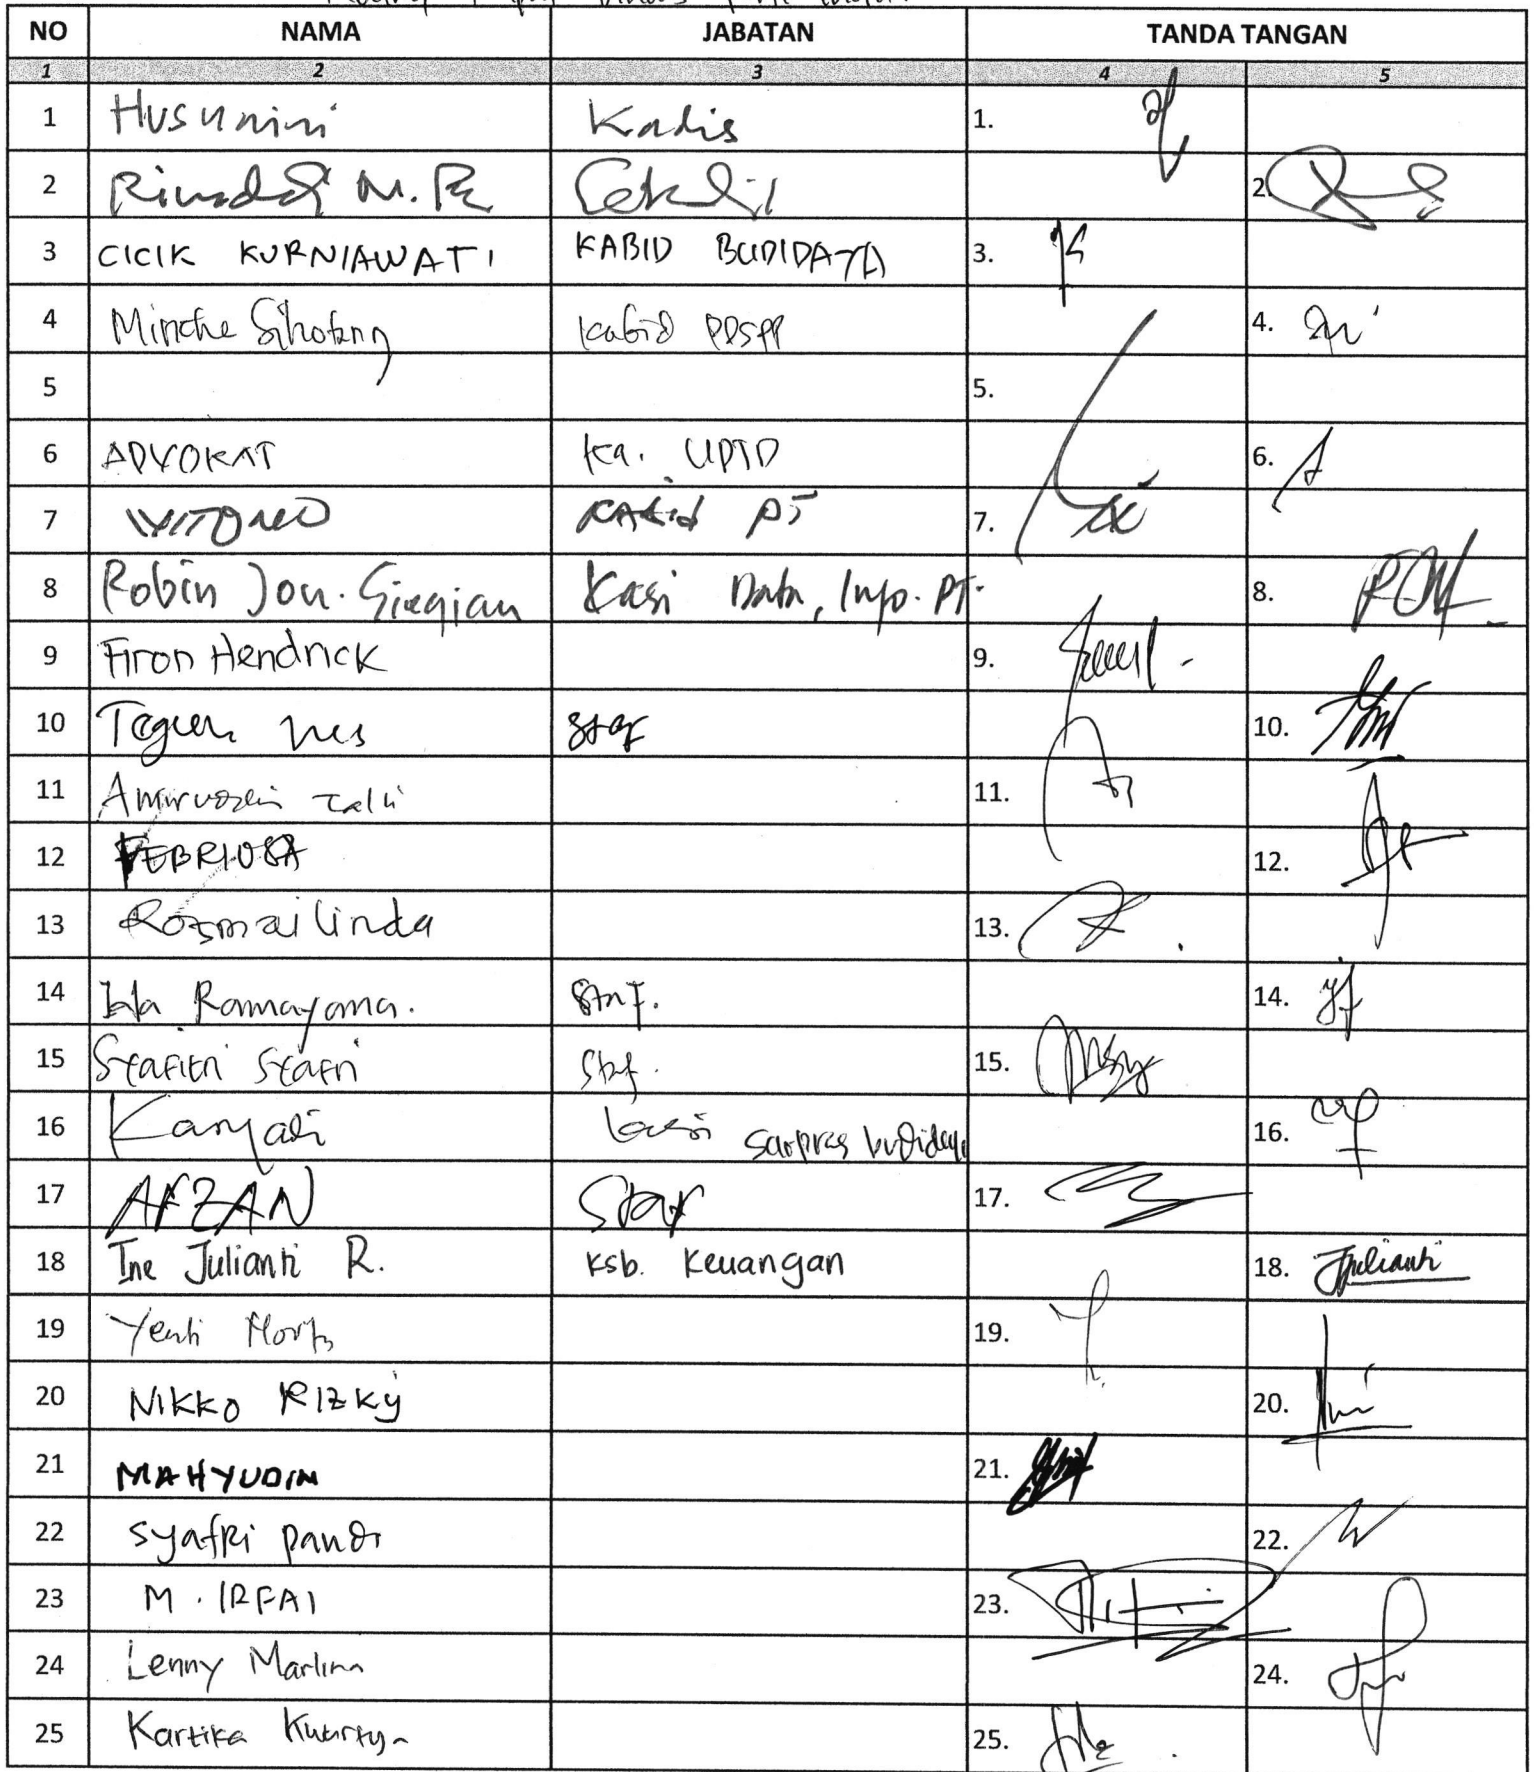 NO NAMA JABATAN TANDA TANGAN
1 2 3 4 5
1 Husunini Kadis 1.
2 M. 2.
3 CICIK KURNIAWATI KABID BUDIDAYA 3.
4 Minche Sihotang Kabid PDSPP 4.
5 5.
6 ADVOKAT Ka. UPTD 6.
7 WITONO Kabid PT 7.
8 Robin Jon. Siregian Kasi Data, Info. PT. 8.
9 Firon Hendrick 9.
10 Teguh staf 10.
11 11.
12 FEBRIOSA 12.
13 Rosmailinda 13.
14 Ramayana. Staf. 14.
15 Syafitri Syafri Staf. 15.
16 Karyadi Kasi Sarpras budidaya 16.
17 AFZAN Staf 17.
18 Ine Julianti R. Ksb. Keuangan 18. Julianti
19 Yenti 19.
20 NIKKO RIZKY 20.
21 MAHYUDIN 21.
22 Syafri Pandi 22.
23 M. IRFAI 23.
24 Lenny Marlina 24.
25 Kartika 25.